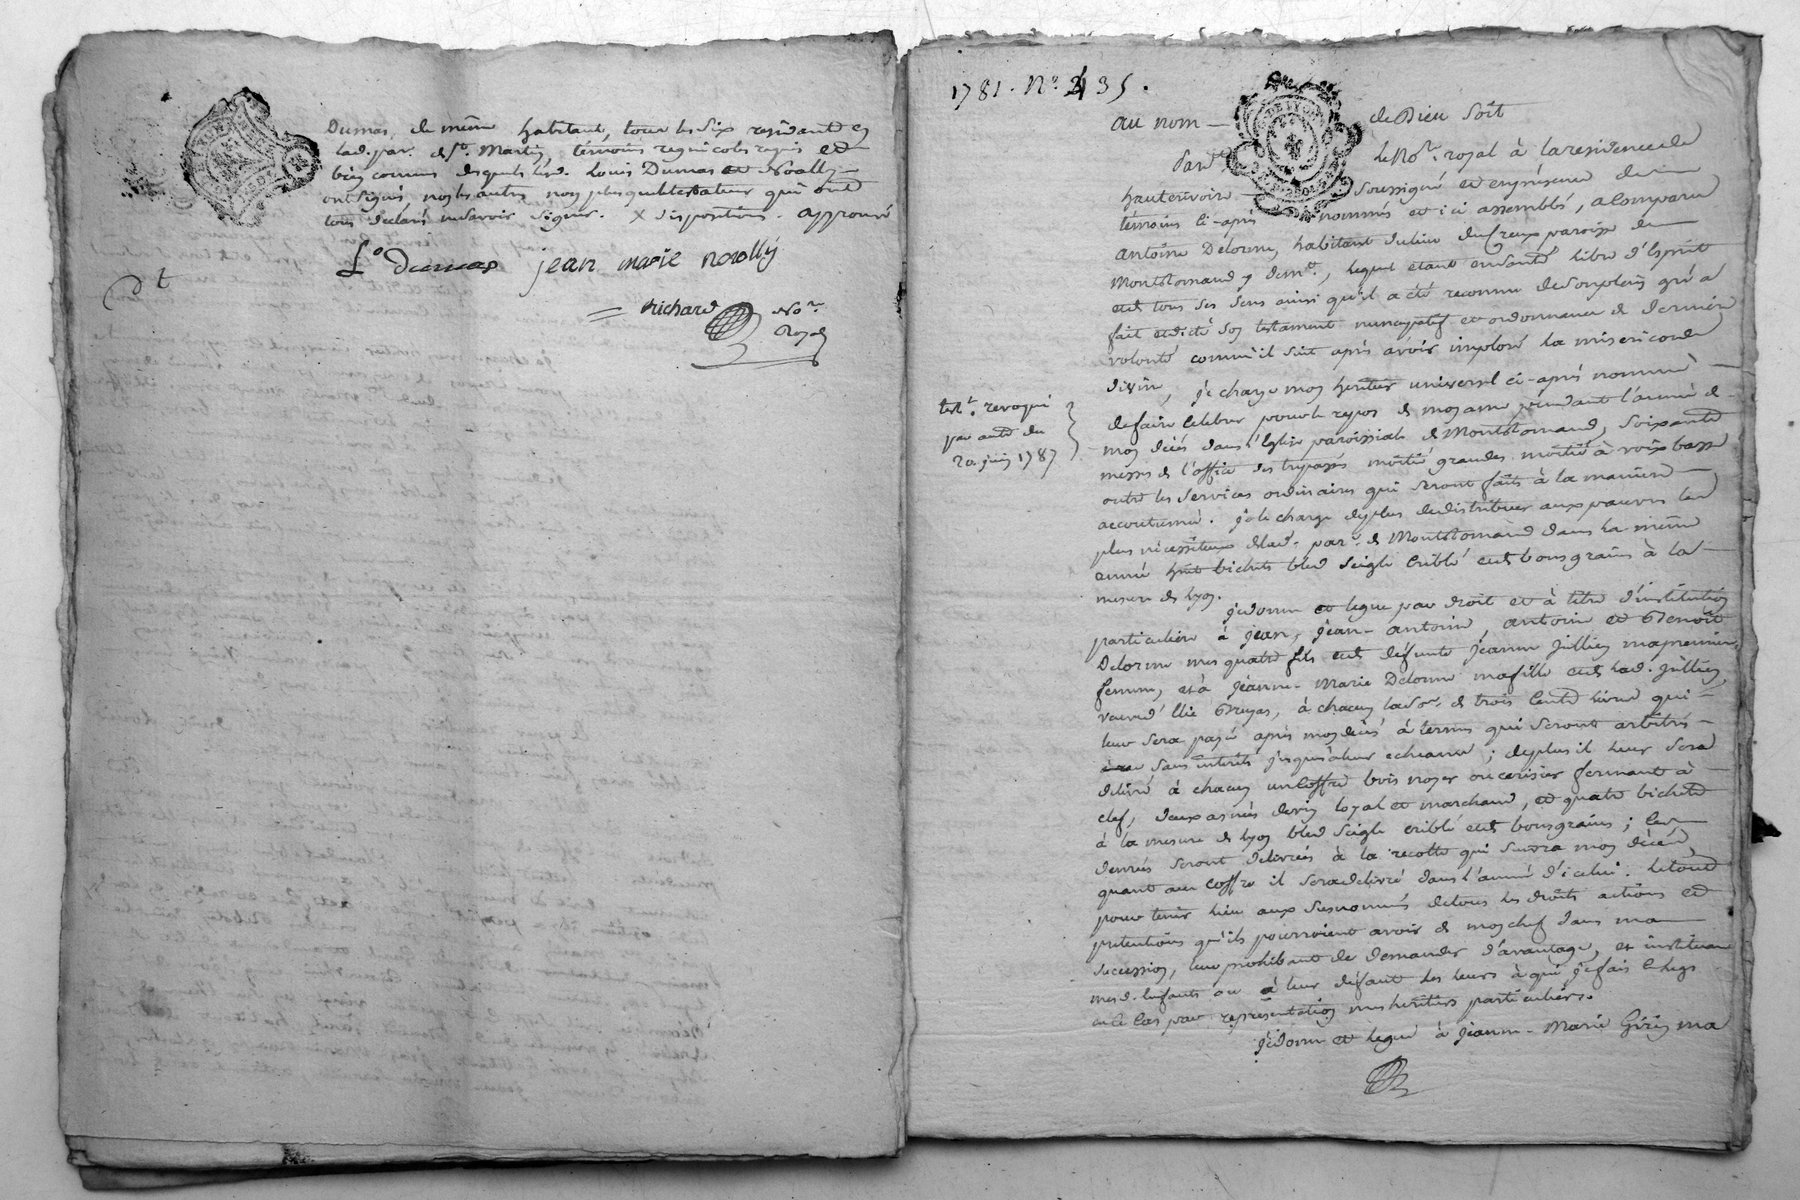 Dumas, de même habitant, tous les six residants en
lad. par. de St. Martin, témoins requis et
bien connus desquels led. Louis Dumas et Noally
ont signés, non les autres non plus que le testateur qui ont
tous declaré ne savoir signer. X dispositions. approuvé
Ls. Dumas jean marie noally
Richard No.re
Royal
1781. N.o 435.
au nom de Dieu soit
Pardt. le No.re royal à la residence de
hauterivoire soussigné et en presence des
témoins ci-après nommés et ici assemblés, a comparu
antoine Delorme, habitant du lieu du Creux paroisse de
Montromand y demt., lequel etant en santé libre d'Esprit
et de tous ses sens ainsi qu'il a été reconnu de son plein gré a
fait et dicté son testament nuncupatif et ordonnance de derniere
volonté comm'il suit après avoir imploré la misericorde
divine, je charge mon heritier universel ci-après nommé
de faire celebrer pour le repos de mon ame pendant l'année de
mon décés dans l'Eglise paroissiale de Montromand, soixante
messes de l'office des trepassés moitié grandes moitié à voix basse
outre les services ordinaires qui seront faits à la maniere
accoutumée. je le charge de plus de distribuer aux pauvres les
plus nécessiteux de lad. par. de Montromand dans la même
année huit bichets bled seigle criblé et de bons grains à la
mesure de lyon.
testt. revoqué
par autre du
20 juin 1787
je donne et legue par droit et à titre d'institution
particuliere à jean, jean-antoine, antoine et Benoît
Delorme mes quatre fils et de defunte jeanne jullien ma premiere
femme, et à jeanne-Marie Delorme ma fille et de lad. jullien,
à chacun la so.e de trois cents livres qui
leur sera payé après mon décés à termes qui seront arbitrés
sans interêts jusqu'à leur echeance; de plus il leur sera
delivré à chacun un coffre bois noyer ou cerisier fermant à
clef, deux asnées de vin loyal et marchand, et quatre bichets
à la mesure de lyon bled seigle criblé et de bons grains; les
denrées seront delivrées à la recolte qui suivra mon décés,
quant au coffre il sera delivré dans l'année d'icelui. le tout
pour tenir lieu aux susnommés de tous les droits actions et
pretentions qu'ils pourroient avoir de mon chef dans ma
succession, leur prohibant de demander d'avantage, et instituant
mesd. Enfants ou à leur défaut les leurs à qui je fais le legs
en ce cas par representation mes heritiers particuliers.
je donne et legue à jeanne-Marie Girin ma